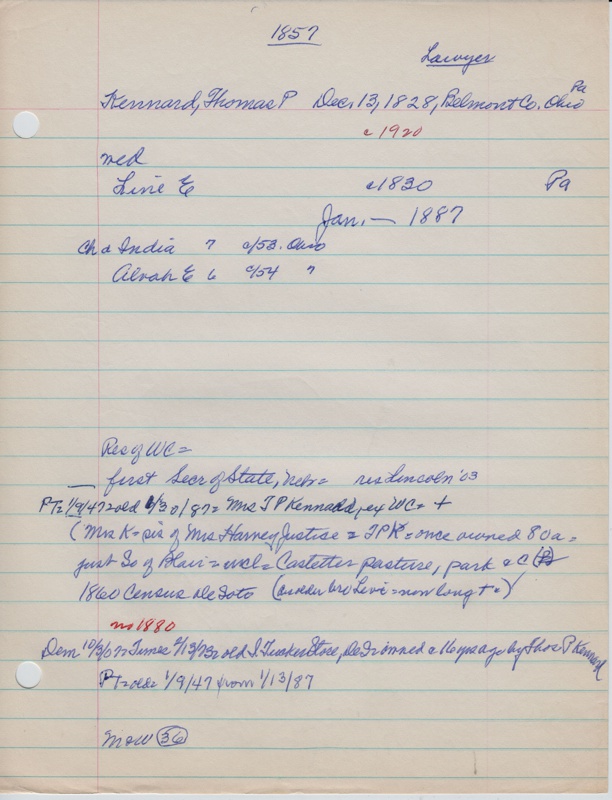 1857
Lawyer
Kennard, Thomas P Dec, 13, 1828, Belmont Co. Ohio Pa
c 1920
wed
Livie E c1830 Pa
Jan, — 1887
Ch d India 7 c/53. Ohio
Alvah E 6 c/54 "
Res of WC =
— first Secr of State, Nebr = res Lincoln '03
PT = 1/9/47 = old 1/30/87 = Mrs T P Kennard, ex WC = +
(Mrs K = sis of Mrs Harvey Justice = TPK = once owned 80a =
just So of Blair = incl = Castetter pasture, park & C
1860 Census DeSoto (under bro Levi = now long t =)
no 1880
Dem 10/3/07 = Times 2/13/73 = old S. Tucker Store, DeS = owned by Thos P Kennard
PT = old = 1/9/47 from 1/13/87
M & W 36